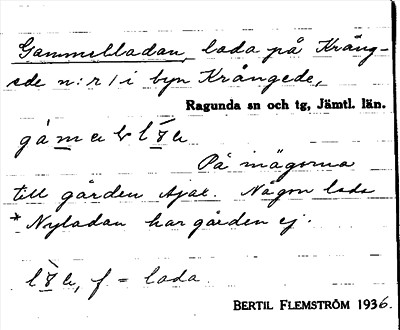 Gammelladan, lada på Krång-
ede n:r 1 i byn Krångede,
Ragunda sn och tg, Jämtl. län.
På mägorna
till gården Ajax. Någon lada
* Nyladan har gården ej.
f = lada
BERTIL FLEMSTRÖM 1936.